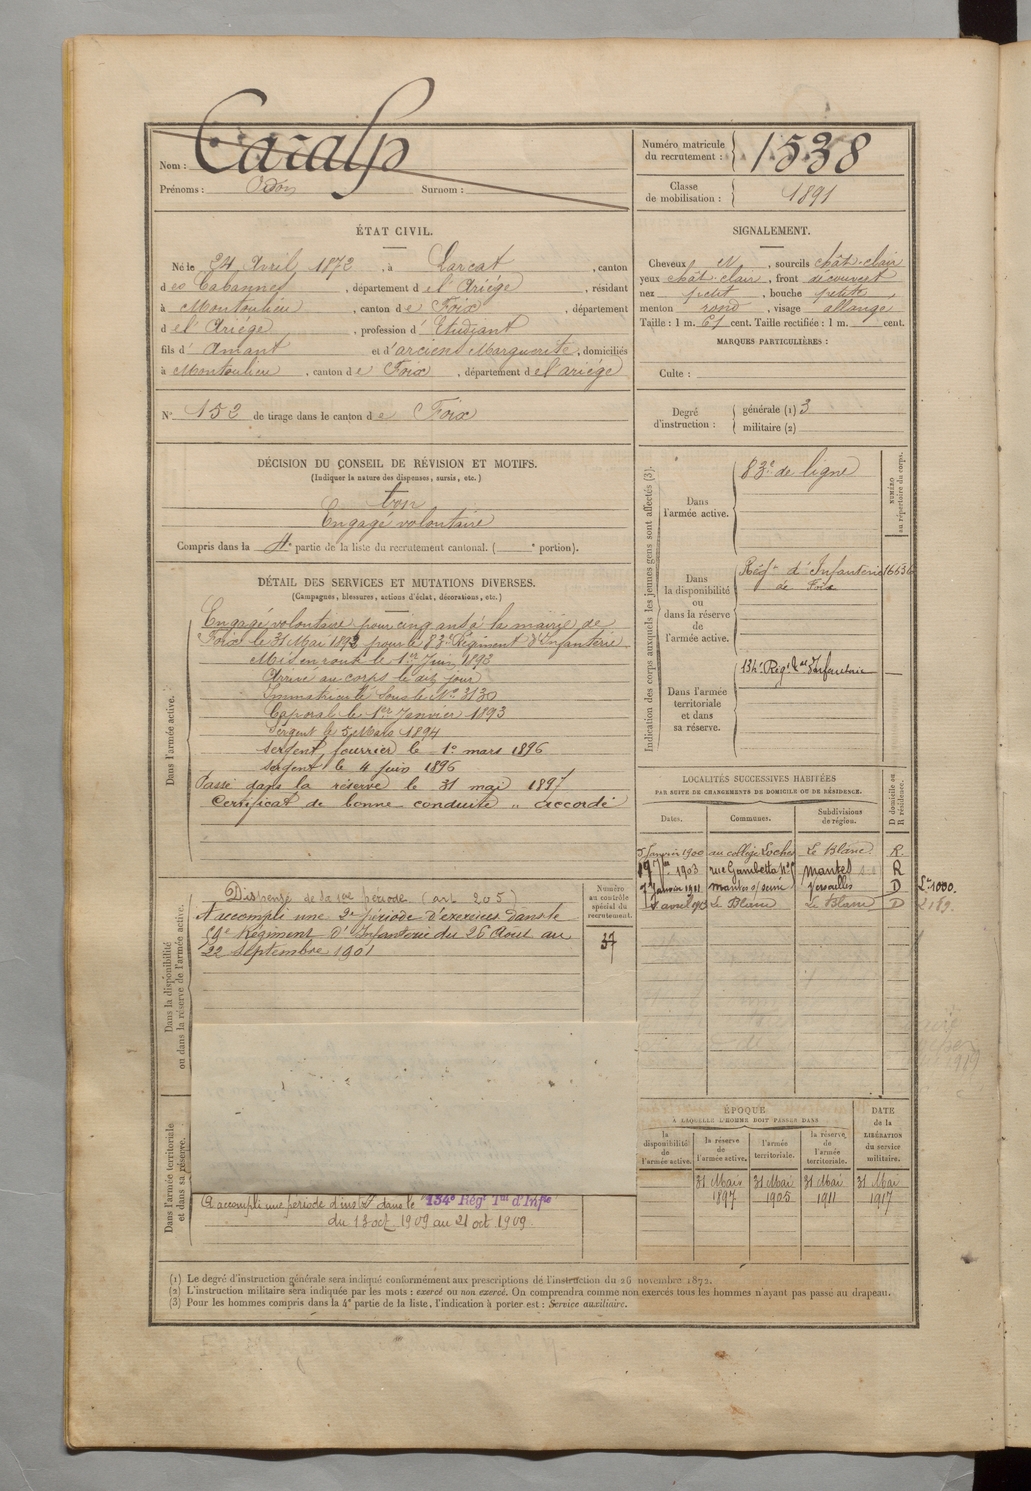 Nom : Caralp
Prénoms : Odon Surnom :
Numéro matricule du recrutement : 1538
Classe de mobilisation : 1891
ÉTAT CIVIL.
Né le 24 Avril 1872, à Larcat, canton
des Cabannes, département de l'Ariège, résidant
à Montoulieu, canton de Foix, département
de l'Ariège, profession d'Etudiant
fils d'Amant et d'arcien Marguerite, domiciliés
à Montoulieu, canton de Foix, département de l'ariège
N° 152 de tirage dans le canton de Foix
SIGNALEMENT.
Cheveux N, sourcils chât-clair
yeux chât-clair, front découvert
nez petit, bouche petite
menton rond, visage allongé
Taille : 1 m. 61 cent. Taille rectifiée : 1 m. cent.
MARQUES PARTICULIÈRES :
Culte :
Degré d'instruction : générale (1) 3
militaire (2)
DÉCISION DU CONSEIL DE RÉVISION ET MOTIFS.
(Indiquer la nature des dispenses, sursis, etc.)
bon
Engagé volontaire
Compris dans la 4e partie de la liste du recrutement cantonal. ( e portion).
DÉTAIL DES SERVICES ET MUTATIONS DIVERSES.
(Campagnes, blessures, actions d'éclat, décorations, etc.)
Dans l'armée active.
Engagé volontaire pour cinq ans à la mairie de
Foix le 31 Mai 1892 pour le 83e Régiment d'Infanterie
Mis en route le 1er Juin 1892
Arrivé au corps le dit jour
Immatriculé sous le No 3130
Caporal le 1er Janvier 1893
Sergent le 5 Mars 1894
sergent fourrier le 1er mars 1896
sergent le 4 juin 1896
Passé dans la réserve le 31 mai 1897
Certificat de bonne conduite "accordé
Indication des corps auxquels les jeunes gens sont affectés (3).
NUMÉRO au répertoire du corps.
Dans l'armée active. 83e de ligne
Dans la disponibilité ou dans la réserve de l'armée active. Régt d'Infanterie
de Foix
Dans l'armée territoriale et dans sa réserve. 134e Régt Tal Infanterie
LOCALITÉS SUCCESSIVES HABITÉES
PAR SUITE DE CHANGEMENTS DE DOMICILE OU DE RÉSIDENCE.
Dates. Communes. Subdivisions de région. D domicile ou R résidence.
5 Janvier 1900 au collège Loches Le Blanc R.
19 7bre 1903 rue Gambetta Mantes R
7 Janvier 1911 mantes s/ seine Versailles D Lre 1000.
avril Le Blanc Le Blanc D L 189.
Dans la disponibilité ou dans la réserve de l'armée active.
Numéro au contrôle spécial du recrutement.
37
Dispensé de la 1ère période (art 205)
A accompli une 2e période d'exercices dans le
Régiment d'Infanterie du 26 Août au
22 septembre 1901
Dans l'armée territoriale et dans sa réserve.
A accompli une période d'inston dans le 134e Régt Tal d'Infie
du 13 oct 1909 au 21 oct 1909.
ÉPOQUE
À LAQUELLE L'HOMME DOIT PASSER DANS
la disponibilité de l'armée active. la réserve de l'armée active. l'armée territoriale. la réserve de l'armée territoriale.
DATE DE LA LIBÉRATION du service militaire.
31 Mai 1897 31 Mai 1905 31 Mai 1911 31 Mai 1917
(1) Le degré d'instruction générale sera indiqué conformément aux prescriptions de l'instruction du 26 novembre 1872.
(2) L'instruction militaire sera indiquée par les mots : exercé ou non exercé. On comprendra comme non exercés tous les hommes n'ayant pas passé au drapeau.
(3) Pour les hommes compris dans la 4e partie de la liste, l'indication à porter est : Service auxiliaire.